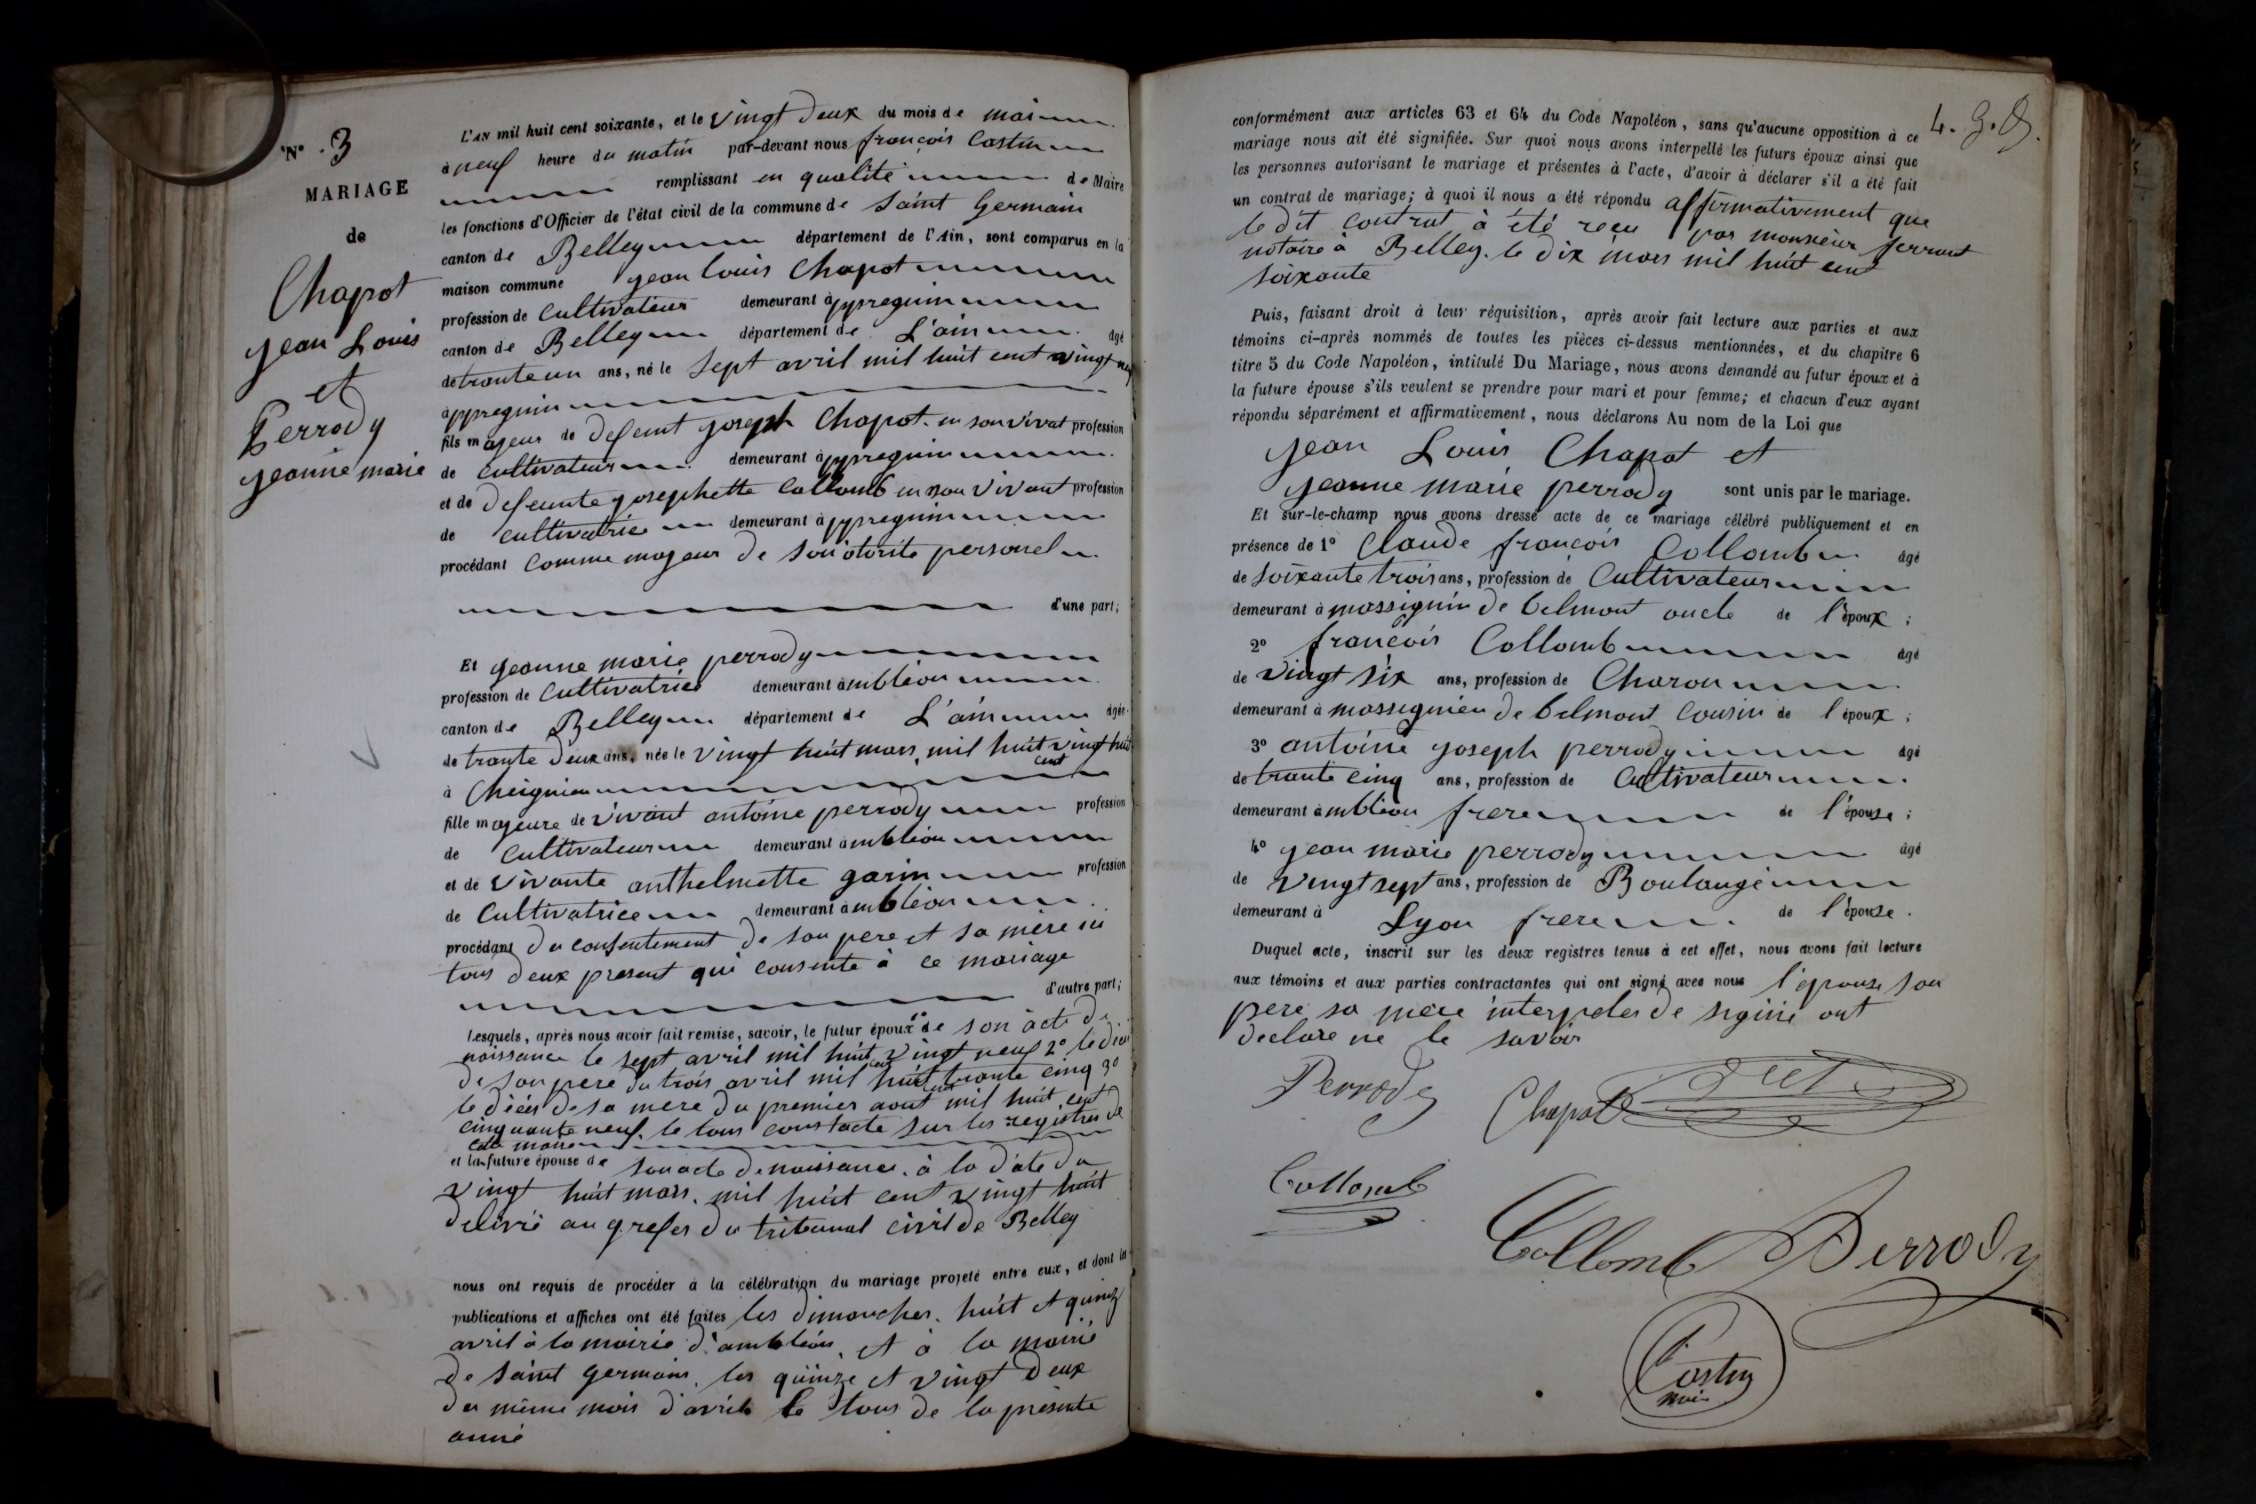 N° 3
MARIAGE
de
Chapot
jean Louis
et
Perrody
jeanne marie
L'AN mil huit cent soixante, et le vingt deux du mois de mai
à neuf heure du matin par-devant nous françois Castin
remplissant en qualité de Maire
les fonctions d'Officier de l'état civil de la commune de saint Germain
canton de Belley département de l'Ain, sont comparus en la
maison commune jean louis Chapot
profession de cultivateur demeurant à appregnin
canton de Belley département de L'ain âgé
de trante un ans, né le sept avril mil huit cent vingt neuf
appregnin
fils majeur de defeunt joseph Chapot en son vivat profession
de cultivateur demeurant à appregnin
et de defeunte josephette Collomb en son vivant profession
de cultivatrice demeurant à appregnin
procédant comme majeur de son otorite personel
d'une part;
Et jeanne marie perrody
profession de cultivatrice demeurant à mbléon
canton de Belley département de L'ain âgée
de trante deux ans, née le vingt huit mars mil huit cent vingt huit
à Cheignieu
fille majeure de vivant antoine perrody profession
de cultivateur demeurant à mbléon
et de vivante anthelmette garin profession
de cultivatrice demeurant à mbléon
procédant du consentement de son pere et sa mère ici
tous deux present qui consente à ce mariage
d'autre part;
Lesquels, après nous avoir fait remise, savoir, le futur époux 1° de son acte de
naissance le sept avril mil huit cent vingt neuf 2° le dicé
de son pere du trois avril mil huit cent trante cinq 3°
le décés de sa mere du premier aout mil huit cent
cinquante neuf. le tous constacté sur les registres de
cete mairie
et la future épouse de son acte de naissance. à la date du
vingt huit mars. mil huit cent vingt huit
délivré au grefes du tribunal civil de Belley
nous ont requis de procéder à la célébration du mariage projeté entre eux, et dont les
publications et affiches ont été faites les dimanches. huit et quinz
avril à la mairie d'ambléon et à la mairie
de saint germain. les quinze et vingt deux
du même mois d'avril le tous de la présente
anné
4. g. D.
conformément aux articles 63 et 64 du Code Napoléon, sans qu'aucune opposition à ce
mariage nous ait été signifiée. Sur quoi nous avons interpellé les futurs époux ainsi que
les personnes autorisant le mariage et présentes à l'acte, d'avoir à déclarer s'il a été fait
un contrat de mariage; à quoi il nous a été répondu affirmativement que
le dit contrat à été reçu par monsieur ferrant
notaire à Belley. le dix mars mil huit cent
soixante
Puis, faisant droit à leur réquisition, après avoir fait lecture aux parties et aux
témoins ci-après nommés de toutes les pièces ci-dessus mentionnées, et du chapitre 6
titre 5 du Code Napoléon, intitulé Du Mariage, nous avons demandé au futur époux et à
la future épouse s'ils veulent se prendre pour mari et pour femme; et chacun d'eux ayant
répondu séparément et affirmativement, nous déclarons Au nom de la Loi que
jean Louis Chapot et
jeanne marie perrody sont unis par le mariage.
Et sur-le-champ nous avons dressé acte de ce mariage célébré publiquement et en
présence de 1° Claude françois Collomb âgé
de soixante trois ans, profession de Cultivateur
demeurant à massignin de belmont oncle de l'époux;
2° françois Collomb âgé
de vingt six ans, profession de Charon
demeurant à massignieu de belmont Cousin de l'époux;
3° antoine joseph perrody âgé
de trante cinq ans, profession de Cultivateur
demeurant à mbléon frere de l'épouse;
4° jean marie perrody âgé
de vingt sept ans, profession de Boulangé
demeurant à Lyon frere de l'épouse.
Duquel acte, inscrit sur les deux registres tenus à cet effet, nous avons fait lecture
aux témoins et aux parties contractantes qui ont signé avec nous l'épouse son
pere sa mere interpeler de signié ont
declare ne le savoir
Perrody
Chapot
Collomb
Collomb
Perrody
Castin
maire